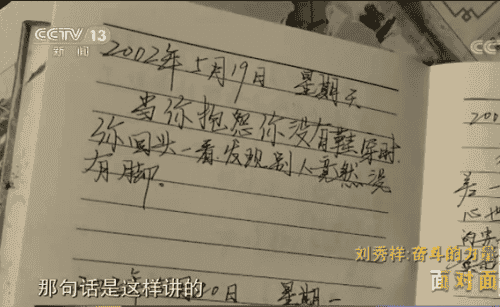 CCTV 13
新闻
CC
2002年5月19日 星期天
当你抱怨你没有鞋穿时,
你回头一看,发现别人竟然没
有脚.
200
刘秀祥:奋斗的力量
面对面
那句话是这样讲的
20日 星期一